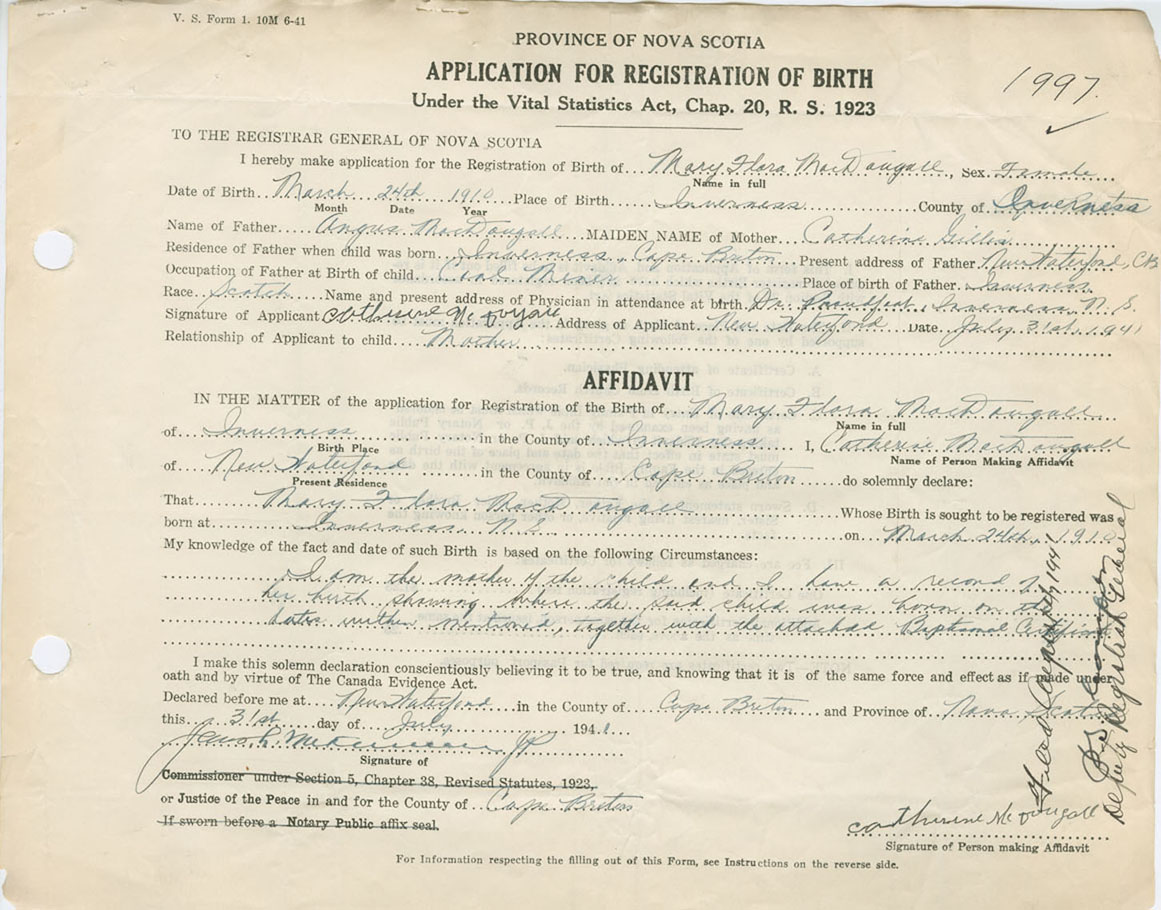 V. S. Form 1. 10M 6-41
PROVINCE OF NOVA SCOTIA
APPLICATION FOR REGISTRATION OF BIRTH
1997.
Under the Vital Statistics Act, Chap. 20, R. S. 1923
TO THE REGISTRAR GENERAL OF NOVA SCOTIA
I hereby make application for the Registration of Birth of Mary Flora MacDougall, Sex Female
Name in full
Date of Birth March 24th 1910 Place of Birth Inverness County of Inverness
Month Date Year
Name of Father Angus MacDougall MAIDEN NAME of Mother Catherine Gillis
Residence of Father when child was born Inverness, Cape Breton Present address of Father New Waterford, C.B.
Occupation of Father at Birth of child Coal Miner Place of birth of Father Inverness
Race Scotch Name and present address of Physician in attendance at birth Dr. Proudfoot, Inverness N. S.
Signature of Applicant Catherine Address of Applicant New Waterford Date July 31st 1941
Relationship of Applicant to child Mother
AFFIDAVIT
IN THE MATTER of the application for Registration of the Birth of Mary Flora MacDougall
Name in full
of Inverness in the County of Inverness I, Catherine MacDougall
Birth Place Name of Person Making Affidavit
of New Waterford in the County of Cape Breton do solemnly declare:
Present Residence
That Mary Flora MacDougall Whose Birth is sought to be registered was
born at Inverness, N.S. on March 24th, 1910
My knowledge of the fact and date of such Birth is based on the following Circumstances:
I am the mother of the child and I have a record of
her birth showing where the said child was born on the
dates within mentioned, together with the attached Baptismal
I make this solemn declaration conscientiously believing it to be true, and knowing that it is of the same force and effect as if made under
oath and by virtue of The Canada Evidence Act.
Declared before me at New Waterford in the County of Cape Breton and Province of Nova Scotia
this 31st day of July 1941
JP
Signature of
Commissioner under Section 5, Chapter 38, Revised Statutes, 1923,
or Justice of the Peace in and for the County of Cape Breton
If sworn before a Notary Public affix seal.
Catherine McDougall
Signature of Person making Affidavit
For Information respecting the filling out of this Form, see Instructions on the reverse side.
1941
Deputy Registrar General